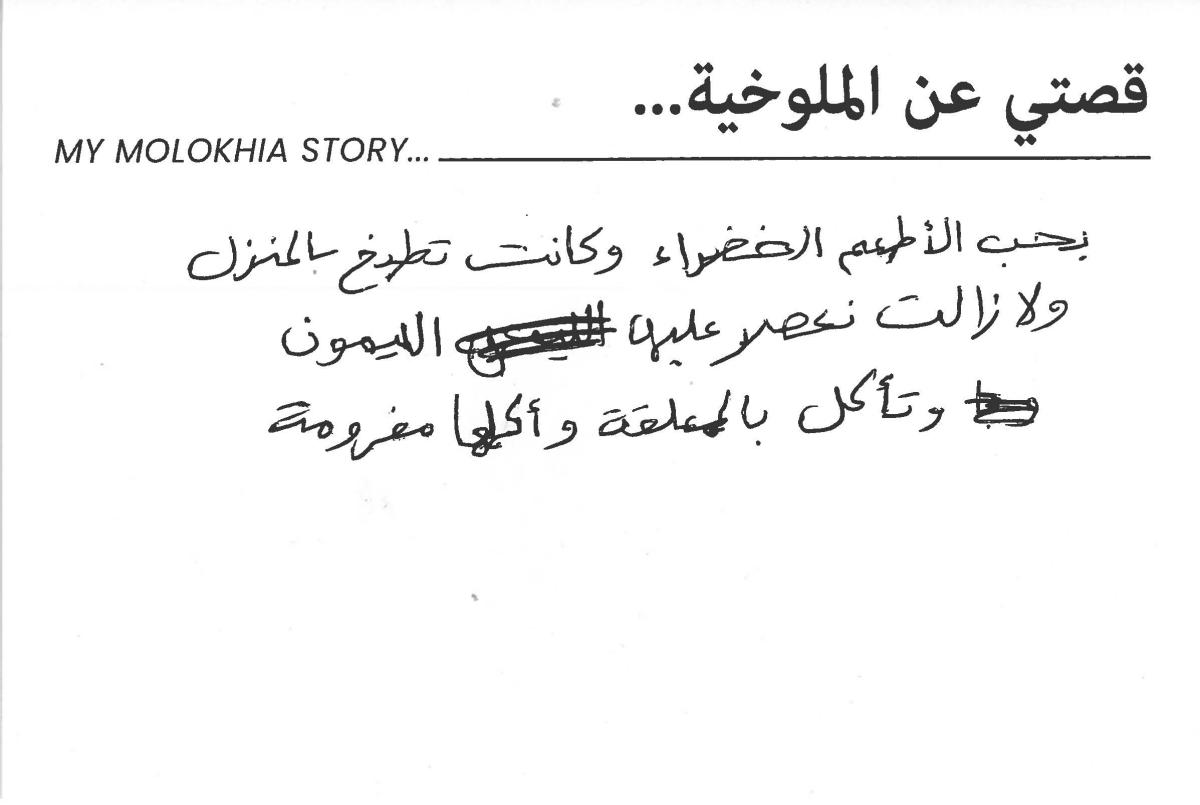 قصتي عن الملوخية...
MY MOLOKHIA STORY...
نحب الأطعم الخضراء وكانت تطبخ بالمنزل
ولا زالت نعصر عليها الليمون
وتأكل بالمعلقة وأكلها مفرومة